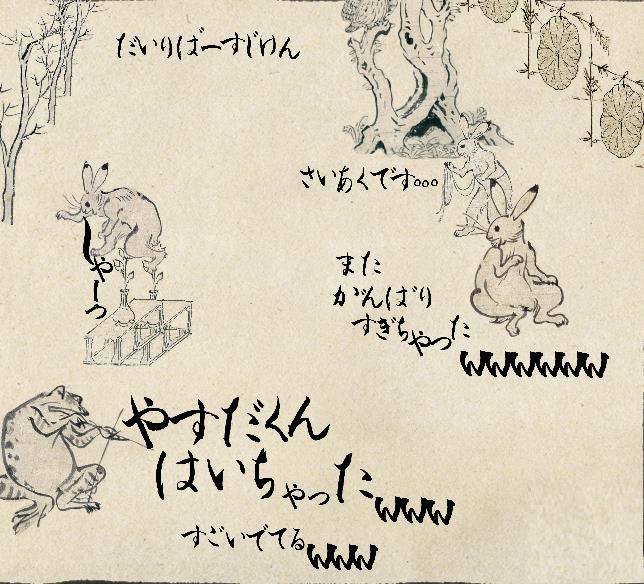 だいりばーすじけん
さいあくです。。。
しゃーっ
また
がんばり
すぎちゃった
wwwwwww
やすだくん
はいちゃった
wwww
すごいでてる
wwww